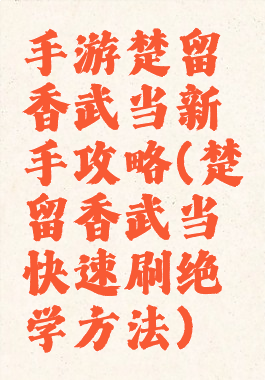 手游楚留
香武当新
手攻略(楚
留香武当
快速刷绝
学方法)